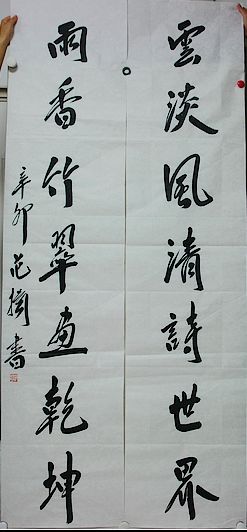 雲淡風清詩世界
雨香竹翠画乾坤
辛卯范揚書